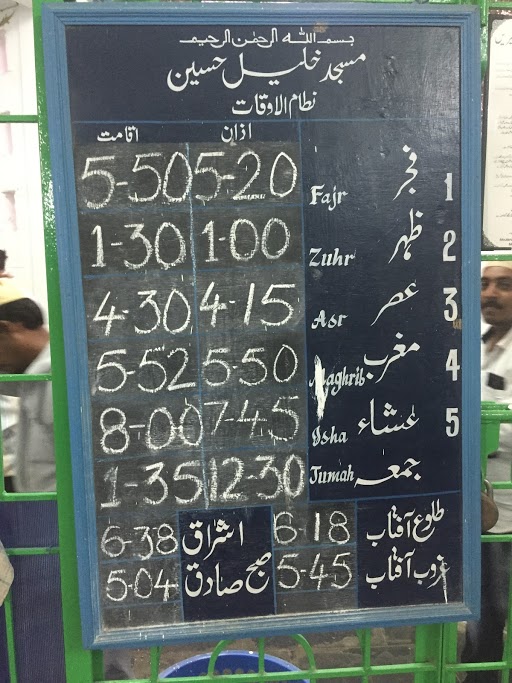 بسم الله الرحمن الرحيم
مسجد خليل حسين
نظام الاوقات
اذان اقامت
1 فجر Fajr 5-20 5-50
2 ظہر Zuhr 1-00 1-30
3 عصر Asr 4-15 4-30
4 مغرب Maghrib 5-50 5-52
5 عشاء Isha 7-45 8-00
جمعہ Jumah 12-30 1-35
طلوع آفتاب 6-18 اشراق 6-38
غروب آفتاب 5-45 صبح صادق 5-04